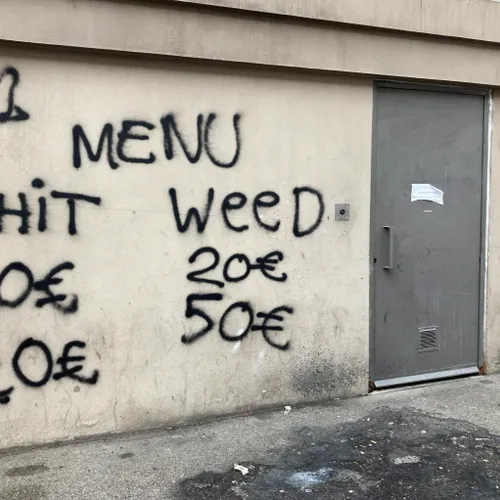 MENU
HiT WeeD
0€ 20€
0€ 50€